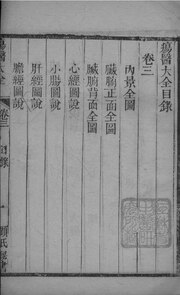 瘍醫大全目錄
卷三
內景全圖
臟腑正面全圖
臟腑背面全圖
心經圖說
小腸圖說
肝經圖說
膽經圖說
瘍醫大全
卷三 目錄